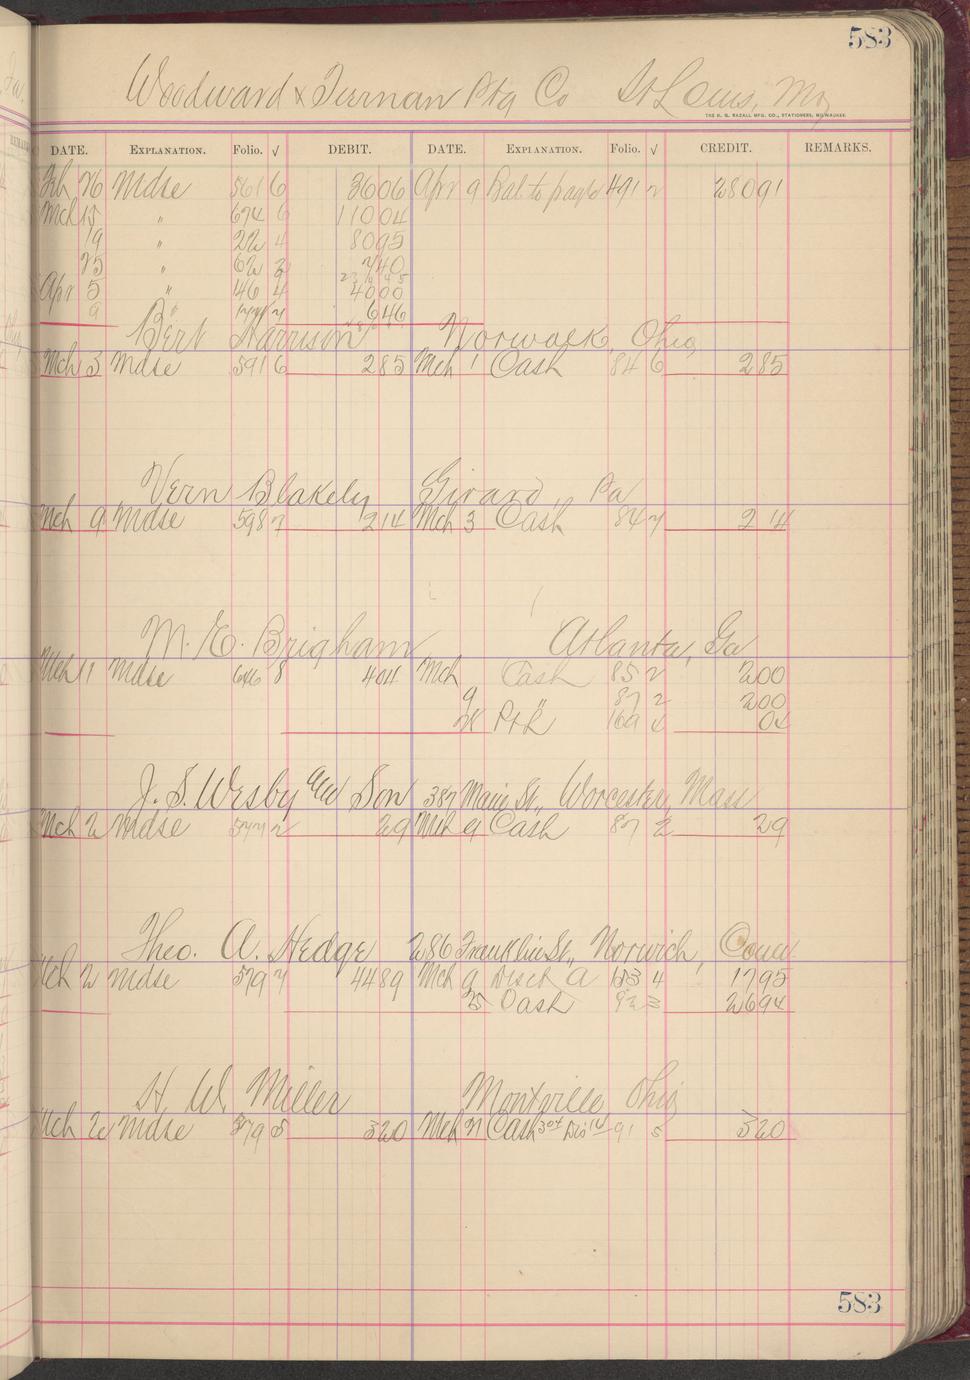 583
Woodward & Tiernan Ptg Co St Louis, Mo
THE H. G. RAZALL MFG. CO., STATIONERS, MILWAUKEE
DATE. EXPLANATION. Folio. √ DEBIT. DATE. EXPLANATION. Folio. √ CREDIT. REMARKS.
Feb 26 Mdse 561 6 3606 Apr 9 Bal to 491 2 28091
Mch 15 " 674 6 11004
19 " 222 4 8095
25 " 62 2 740
Apr 5 " 146 4 4000
9 " 646
Bert Harrison Norwalk, Ohio
Mch 3 Mdse 591 6 285 Mch 1 Cash 84 6 285
Vern Blakely Girard, Pa
Mch 9 Mdse 598 7 214 Mch 3 Cash 84 7 2 14
M. E. Brigham, Atlanta, Ga
Mch 11 Mdse 646 8 404 Mch Cash 85 2 200
9 " 87 2 200
P & L 169 04
J. S. Wesby and Son 387 Main St., Worcester, Mass
Mch 2 Mdse 577 2 29 Mch 9 Cash 87 2 29
Theo. A. Hedge 286 Franklin St., Norwich, Conn
Mch 2 Mdse 579 7 4489 Mch 9 Disct A 153 4 1795
25 Cash 92 3 2694
H. W. Miller Montville Ohio
Mch 2 Mdse 379 8 320 Mch 21 Cash 304 Dis 16 91 5 320
583